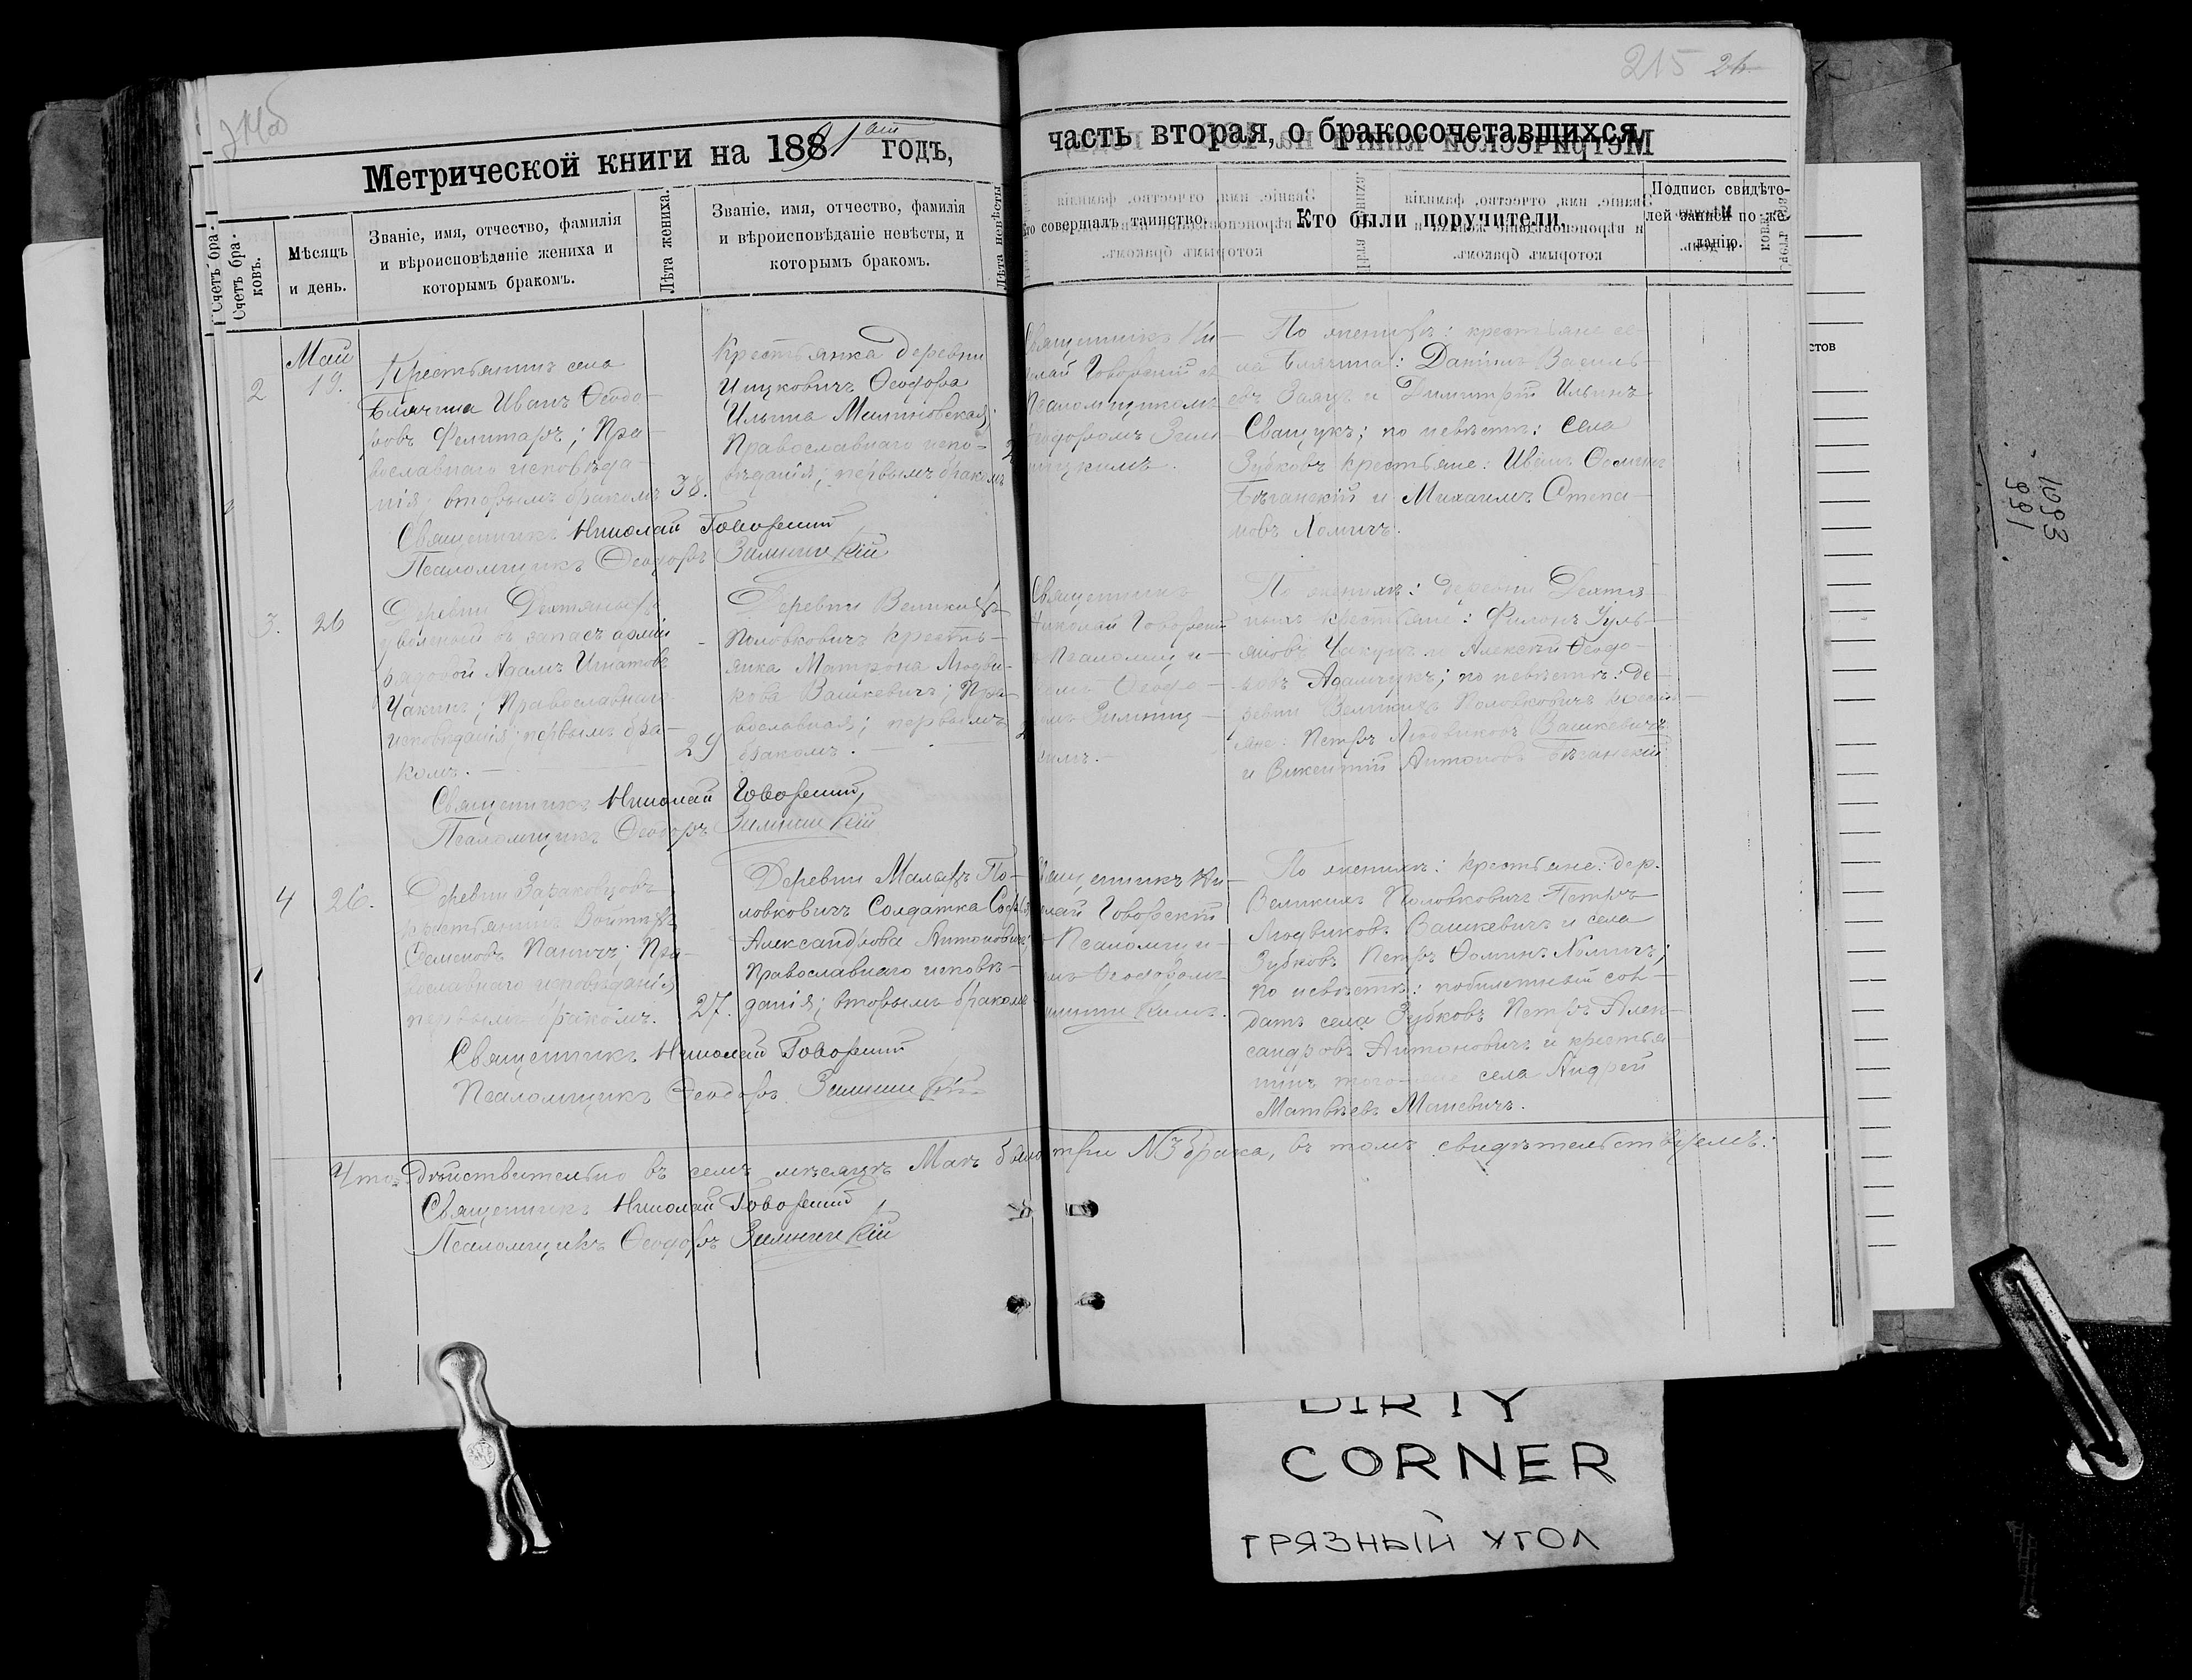 215 26
Метрической книги на 1891 ый годъ,
часть вторая, о бракосочетавшихся
Счетъ бра-
ковъ.
Мѣсяцъ
и день.
Званіе, имя, отчество, фамилія
и вѣроисповѣданіе жениха и
которымъ бракомъ.
Лѣта жениха.
Званіе, имя, отчество, фамилія
и вѣроисповѣданіе невѣсты, и
которымъ бракомъ.
Лѣта невѣсты
то совершалъ таинство.
Кто были поручители.
Подпись свидѣте-
лей записи по же-
ланію.
2
Май
19.
Крестьянинъ села
Блячина Иванъ Ѳеодо-
ровъ ; Пра-
вославнаго исповѣда-
нія; вторымъ бракомъ
38.
Крестьянка деревни
Ѳеодора
Ильина Малиновская;
Православнаго испо-
вѣданія; первымъ бракомъ
2
Священникъ Ни-
олай Говорскій съ
Псаломщикомъ
Ѳеодоромъ Зим-
ницкимъ.
По женихѣ: крестьяне се-
ла Блячина: Даніилъ Василь-
евъ Заяцъ и Димитрій Ильинъ
Сващукъ; по невѣстѣ: села
Зубковъ крестьяне: Иванъ Ѳоминъ
Бѣганскій и Михаилъ Степа-
новъ Хомичъ.
Священникъ Николай Говорскій
Псаломщикъ Ѳеодоръ Зимницкій
3.
26
Деревни Дехтяныхъ
уволеный въ запасъ арміи
рядовой Адамъ Игнатовъ
Чакинъ; Православнаго
исповѣданія; первымъ бра-
комъ.
29
Деревни Великихъ
Половковичъ кресть-
янка Матрона Людви-
кова Вашкевичъ; Пра-
вославная; первымъ
бракомъ.
2
Священникъ
Николай Говорскій
Псаломщи-
комъ Ѳеодо-
омъ Зимниц-
кимъ.
По женихѣ: деревни Дехтя-
ныхъ крестьяне: Филонъ Уль-
яновъ и Алексѣй Ѳеодо-
ровъ Адамчукъ; по невѣстѣ: де-
ревни Великихъ Половковичъ кресть-
яне: Петръ Людвиковъ Вашкевичъ
и Викентій Антоновъ Бѣганскій
Священникъ Николай Говорскій,
Псаломщикъ Ѳеодоръ Зимницкій
4
26.
Деревни Зараковцовъ
крестьянинъ Войтѣхъ
Семеновъ Паничъ; Пра-
вославнаго исповѣданія;
первымъ бракомъ.
27.
Деревни Малыхъ По-
ловковичъ Солдатка Софія
Александрова Антоновичъ;
Православнаго исповѣ-
данія; вторымъ бракомъ
Священникъ Ни-
олай Говорскій
Псаломщи-
мъ Ѳеодоромъ
Зимницкимъ.
По женихѣ: крестьяне: дер.
Великихъ Половковичъ Петръ
Людвиковъ Вашкевичъ и села
Зубковъ Петръ Ѳоминъ Хомичъ;
по невѣстѣ: побилетный сол-
датъ села Зубковъ Петръ Алек-
сандровъ Антоновичъ и крестья-
нинъ того-же села Андрей
Матвѣевъ Маневичъ.
Священникъ Николай Говорскій
Псаломщикъ Ѳеодоръ Зимницкій
Что дѣйствительно въ семъ мѣсяцѣ Маѣ было три №3 брака, въ томъ свидѣтельствуемъ:
Священникъ Николай Говорскій,
Псаломщикъ Ѳеодоръ Зимницкій
стов
1093
991
DIRTY
CORNER
ГРЯЗНЫЙ УГОЛ